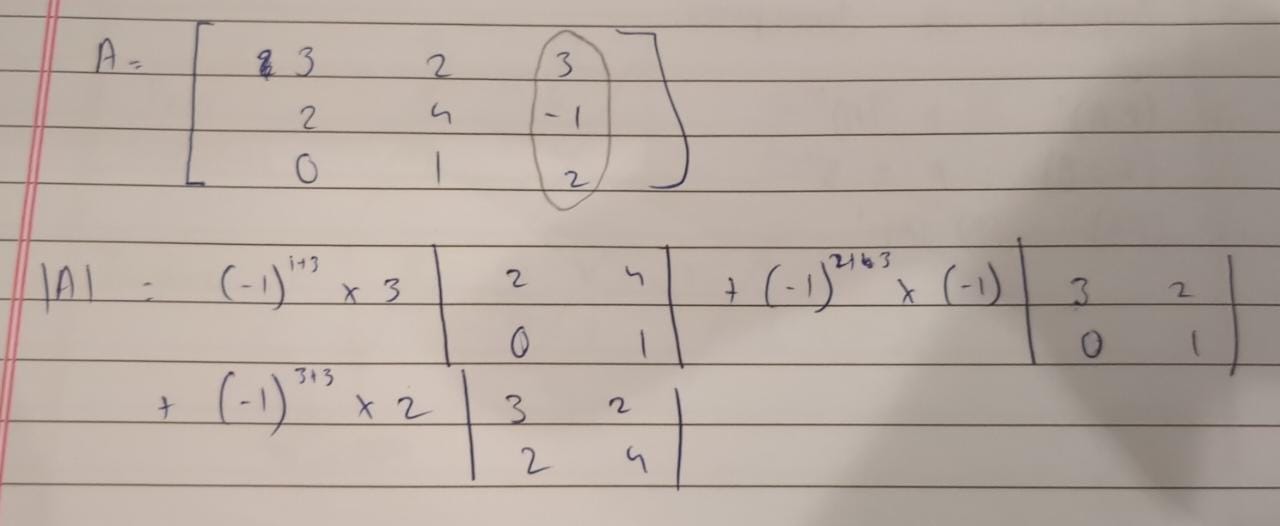 A = [ 3 2 3
2 4 -1
0 1 2 ]
|A| = (-1)^{1+3} × 3 | 2 4 | + (-1)^{2+3} × (-1) | 3 2 |
| 0 1 | | 0 1 |
+ (-1)^{3+3} × 2 | 3 2 |
| 2 4 |